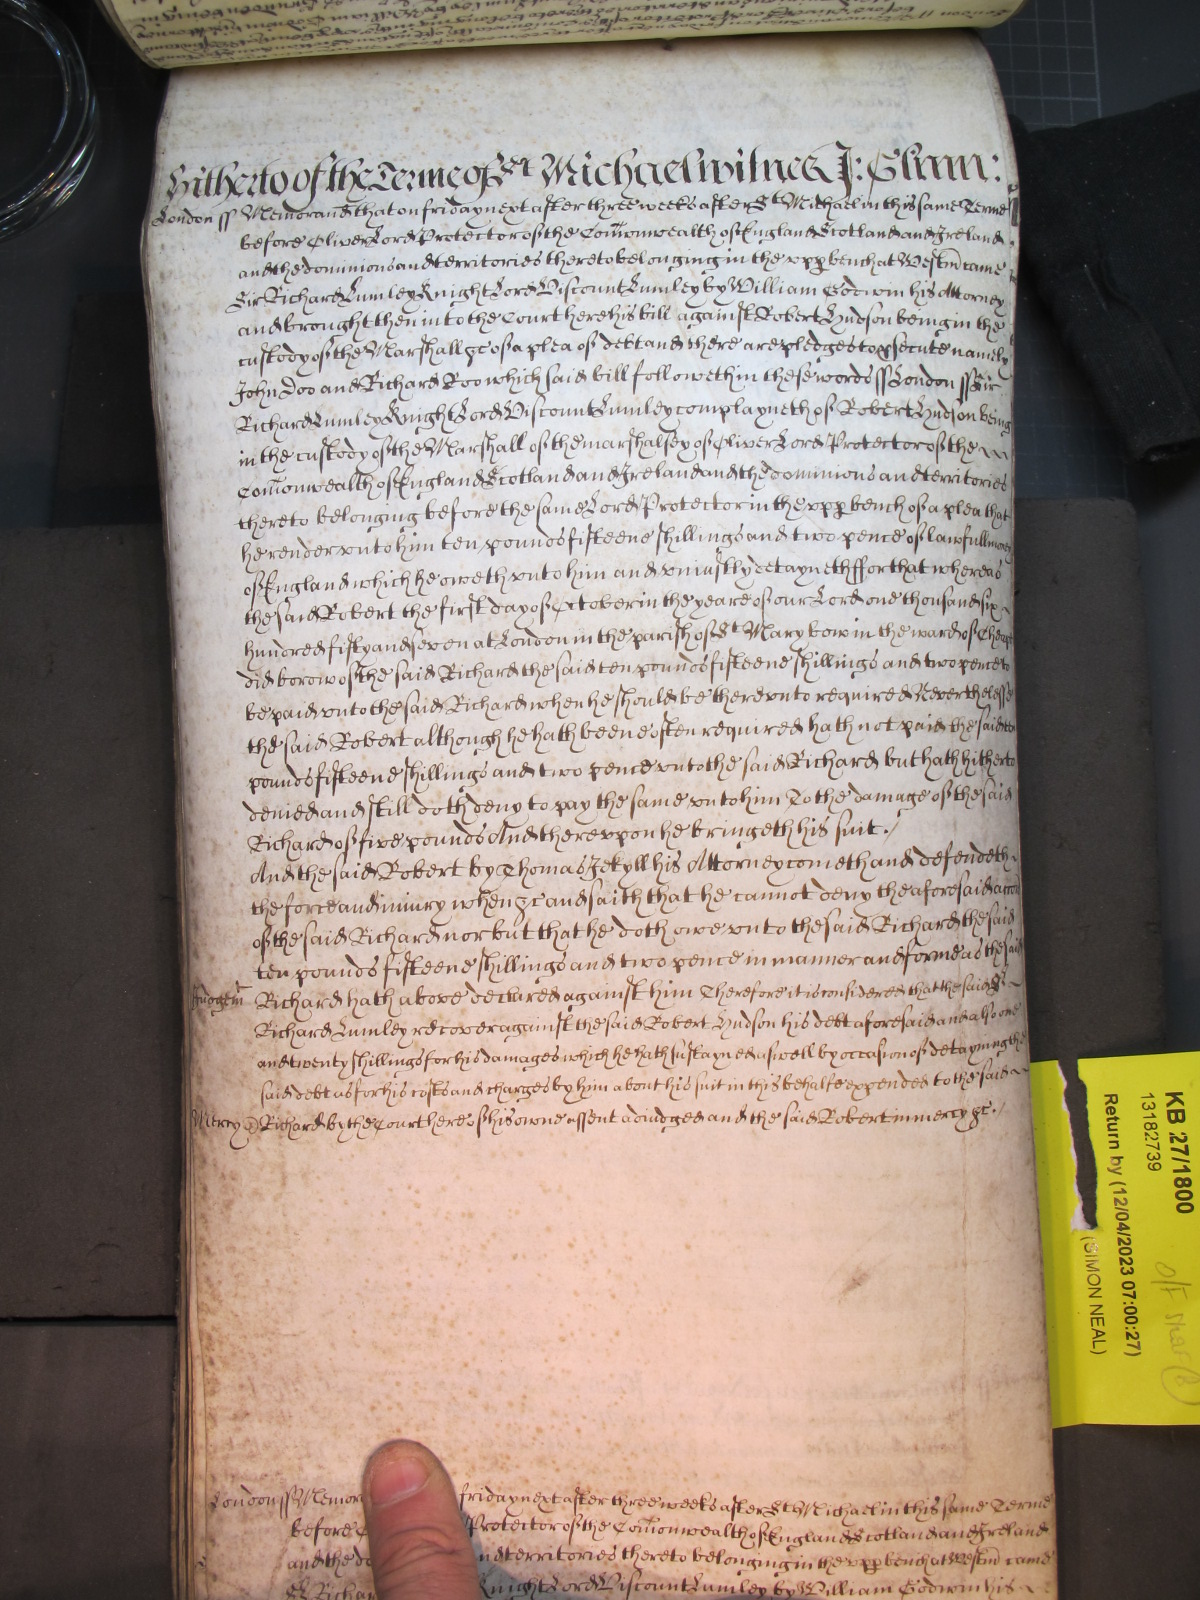 Hitherto of the Terme of St Michael witnes J: Glynn:
London ss Memorand that on friday next after three weeks after St Michael in this same Terme
before Oliver Lord Protector of the Com̄onwealth of England Scotland and Ireland
and the dominions and territories thereto belonging in the upp bench at Westm̄ came
Sir Richard Lumley Knight Lord Viscount Lumley by William Godwin his Attorney
and brought then into the Court here his bill against Robert Hudson being in the
custody of the Marshall &c of a plea of debt and there are pledges to psecute namely
John Doo and Richard Roo which said bill followeth in these words ss London ss Sir
Richard Lumley Knight Lord Viscount Lumley complayneth of Robert Hudson being
in the custody of the Marshall of the marshalsey of Oliver Lord Protector of the
Com̄onwealth of England Scotland and Ireland and the dominions and territories
thereto belonging before the same Lord Protector in the upp bench of a plea that
he render unto him ten pounds fifteene shillings and two pence of lawfull money
of England which he oweth unto him and uniustly detayneth ffor that whereas
the said Robert the first day of October in the yeare of our Lord one thousand six
hundred fifty and seven at London in the parish of St Mary bow in the ward of Cheape
did borow of the said Richard the said ten pounds fifteene shillings and two pence to
be paid unto the said Richard when he should be thereunto required Neverthelesse
the said Robert although he hath beene often required hath not paid the said ten
pounds fifteene shillings and two pence unto the said Richard but hath hitherto
denied and still doth deny to pay the same unto him To the damage of the said
Richard of five pounds And thereupon he bringeth his suit./
And the said Robert by Thomas Jekyll his Attorney cometh and defendeth
the force and iniury when &c and saith that he cannot deny the aforesaid accon
of the said Richard nor but that he doth owe unto the said Richard the said
ten pounds fifteene shillings and two pence in manner and forme as the said
Judgem̄t Richard hath above declared against him Therefore it is considered that the said Sr
Richard Lumley recover against the said Robert Hudson his debt aforesaid and also one
and twenty shillings for his damages which he hath sustayned aswell by occasion of detayning the
said debt as for his costs and charges by him about his suit in this behalfe expended to the said
Mercy Richard by the Court here of his owne assent adiudged and the said Robert in mercy &c./
London ss Memor friday next after three weeks after St Michael in this same Terme
before Protector of the Com̄onwealth of England Scotland and Ireland
and the do nd territories thereto belonging in the upp bench at Westm̄ came
Sr Richar Knight Lord Viscount Lumley by William Godwin his
KB 27/1800
13182739
Return by (12/04/2023 07:00:27)
(SIMON NEAL)